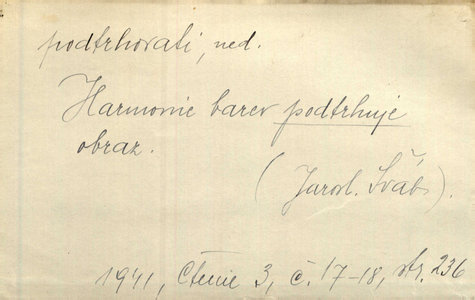 podtrhovati, ned.
Harmonie barev podtrhuje
obraz.
(Jarosl. Šváb).
1941, Čtenie 3, č. 17-18, str. 236